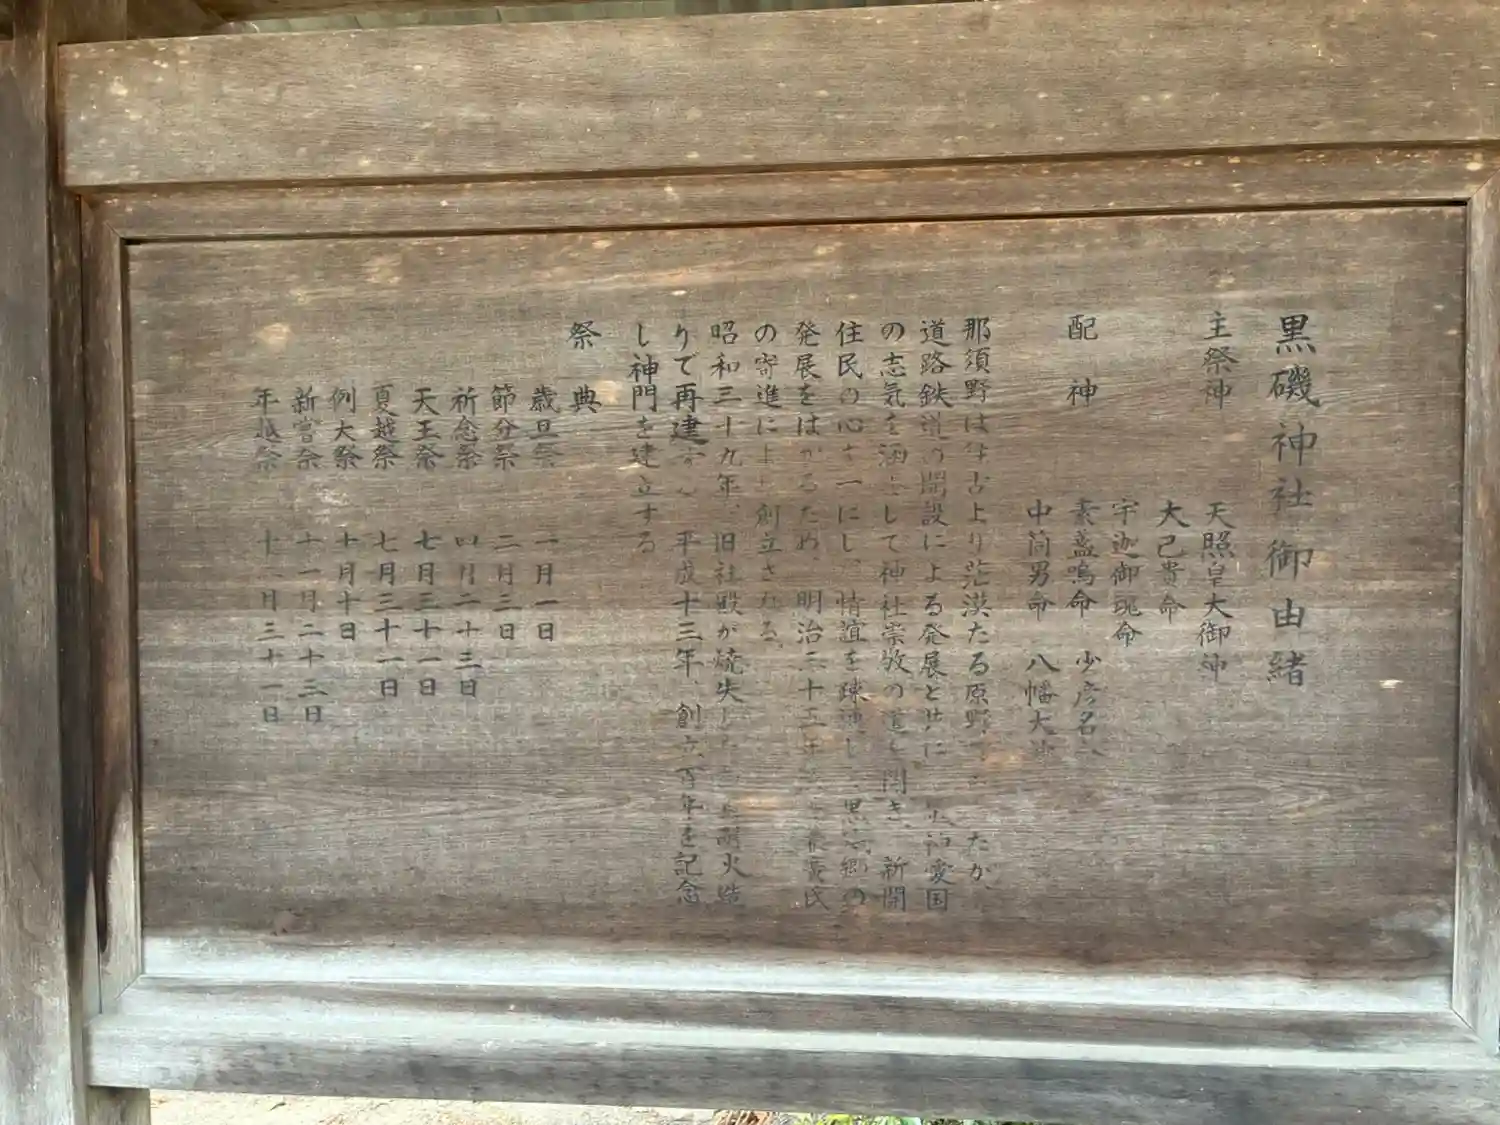 黒磯神社御由緒
主祭神
天照皇大御神
大己貴命
宇迦御魂命
配神
素盞嗚命 少彦名
中筒男命 八幡大
那須野は 古より茫漠たる原野 たが、
道路鉄道の開設による発展と共に 愛国
の志気を涵 して神社崇敬の道を開き、新開
住民の心を一にし、情誼を疎通し 黒 郷の
発展をはかるため、明治三十五年 氏
の寄進により創立される。
昭和三十九年、旧社殿が焼失し 耐火造
りで再建 平成十三年、創立百年を記念
し神門を建立する
祭典
歳旦祭 一月一日
節分祭 二月三日
祈念祭 四月二十三日
天王祭 七月三十一日
夏越祭 七月三十一日
例大祭 十月十日
新嘗祭 十一月二十三日
年越祭 十二月三十一日